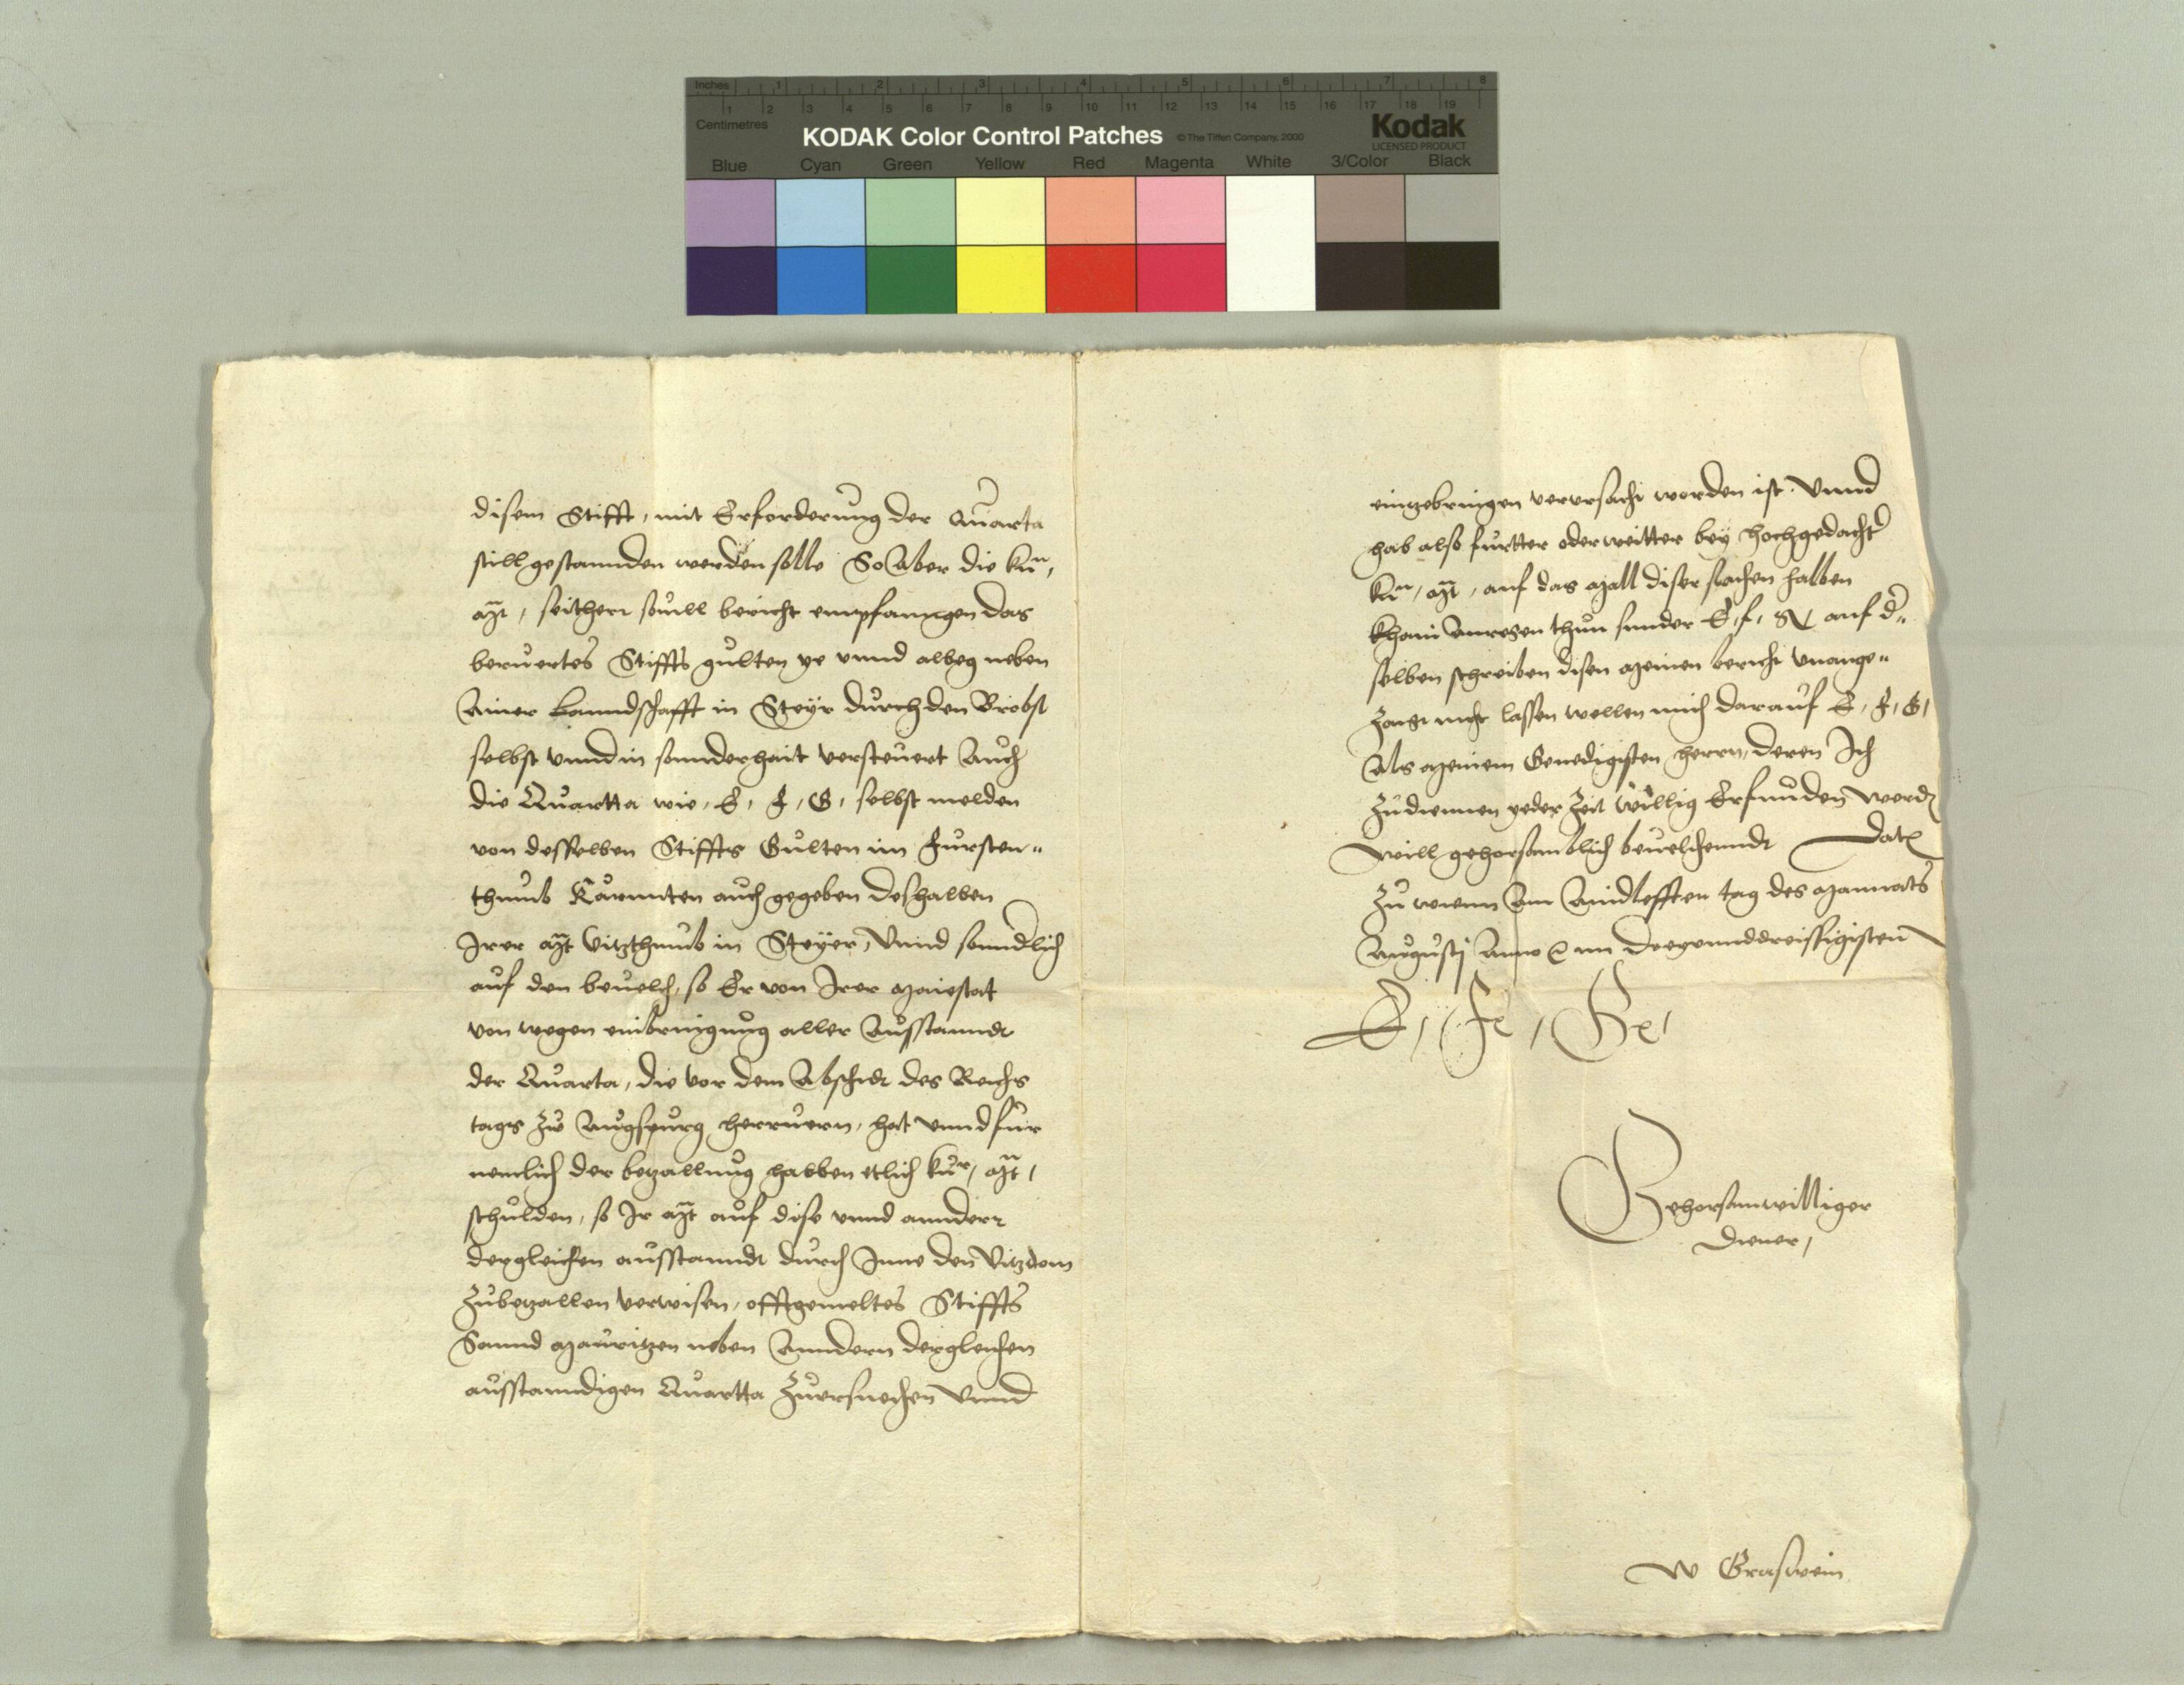 Inches 1 2 3 4 5 6 7 8
Centimetres 1 2 3 4 5 6 7 8 9 10 11 12 13 14 15 16 17 18 19
KODAK Color Control Patches © The Tiffen Company, 2000 Kodak
LICENSED PRODUCT
Blue Cyan Green Yellow Red Magenta White 3/Color Black
disem Stifft, mit Erforderung der Quarta
stillgestannden werden solle So Aber die kun,
mt, seitherr souill bericht empfanngen das
beruertes Stiffts gulten ye vnnd albeg neben
Ainer Lanndschafft in Steyr durch den Brobst
selbst vnnd in sonnderhait versteuert Auch
die Quartta wie, E, F, G, selbst melden
von desselben Stiffts Gulten im Fursten„
thumb Kärnnten auch gegeben deshalben
Irer mt Vitzthumb in Steyer, Vnnd sonndlich
auf den beuelch, so Er von Irer Maiestat
von wegen einbringung aller Ausstanndt
der Quarta, die vor dem Abschidt des Reichs
tags zu Augspurg herruern, hat vnnd fur
nemlich der bezallung halben etlich kur, mt,
schulden, so Ir mt auf dise vnnd annderr
dergleichen ausstanndt durch Inne den Vitzdom
zubezallen verwisen, offtgemeltes Stiffts
Sannd Mauritzen neben Anndern dergleichen
ausstanndigen Quartta zuersuechen Vnnd
einzebringen verursacht worden ist. Vnnd
hab also furtter oder weitter bey hochgedacht
kun, mt, auf das mall diser sachen halben
khain Anregen thun sunder E, f, g auf d„
selben schreiben disen meinen bericht vnange„
zaigt nicht lassen wellen mich darauf E, F, G,
Als meinem Genedigisten herrn, deren Ich
zudiennen yeder Zeit willig Erfunden werd
will gehorsamblich beuelchenndt Dat
Zu wienn Am Aindlefften tag des Mannats
Augustj Anno im Dreyunddreissigisten
E, F, G,
Gehorsamwilliger
Diener,
W Graswein